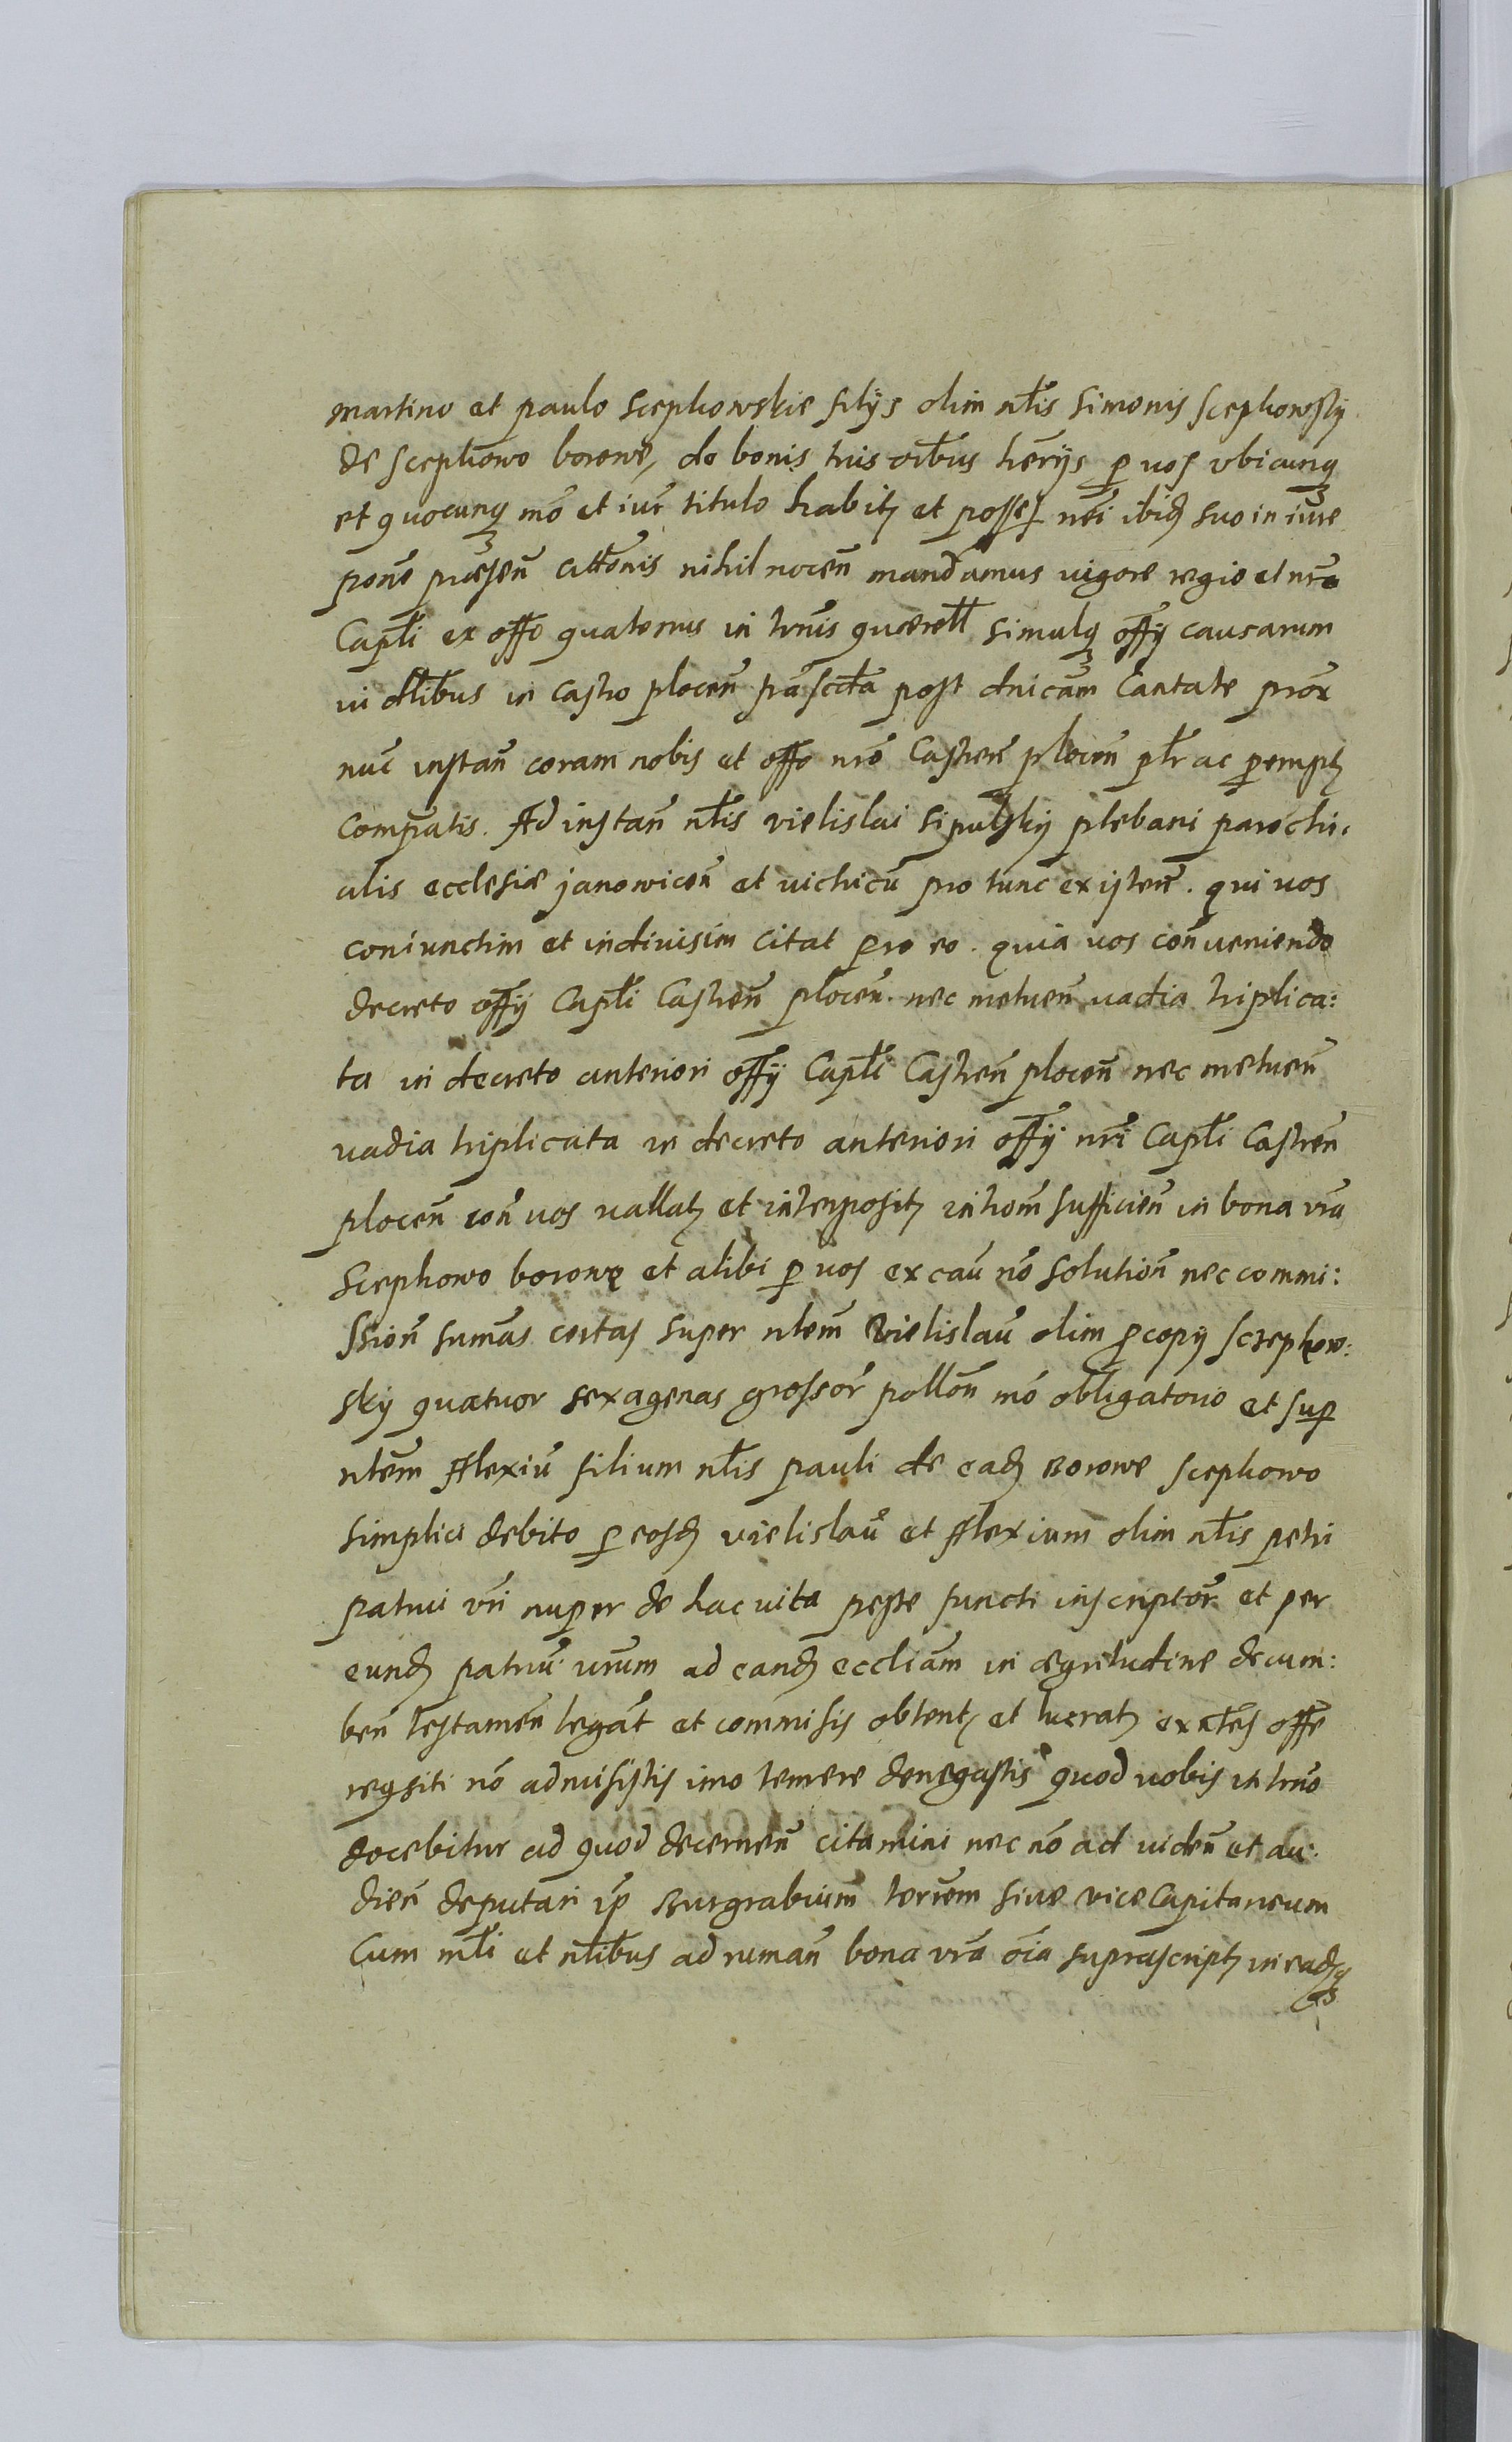 martino et paulo Scephowskie filijs olim nłis Simonis Scephowsky
de Scephowo borowe, de bonis vris oibus herijs p vos vbicunq
et quocunq mo et iur titulo habit et posses nei ibid suo in iure
pone præsen cittonis nihil nocen mandamus vigore regio et nro
Capłi ex offo quatenus in trnis querell simulq offij causarum
in dłibus in Castro plocen p scita post dnicam Cantate prox
nuc instan coram nobis et offo nro Castren plocen płr ac perempt
compatis. Ad instan nłis vielislai Sipulsky plebani parochi.
alis ecclesiæ janowicen et victricu pro tunc existen. qui vos
coniunctim et indivisim citat pro eo. quia vos conveniendo
decreto offij Capłi Castren plocen. nec metuen vadia triplica:
ta in decreto anteriori offij Capłi Castren plocen nec metuen
vadia triplicata in decreto anteriori offij nri Capłi Castren
plocen con vos vallat et interposit introm sufficien in bona vra
Scephowo borowe et alibi p vos ex cau no solution nec commi:
ssion sumas certas super nłem Vielislau olim pcopij Scephow:
skij quatuor sexagenas grossor pollon mo obligatorio et sup
nłem Alexiu filium nłis pauli de ead Borowe Scephowo
simplici debito p eosd vielislau et Alexium olim nłis petri
patrui vri nuper de hac vita peste functi inscriptor et per
eund patruu vrum ad eand eccliam in ægritudine decum:
ben testamen legat et commisis obtent et lucrat exntes offe
reqsiti no admisistis imo temere denegastis quod vobis in trno
docebitur ad quod decernen citamini nec no ad viden et au:
dien deputari ip Burgrabium terrem sive vice Capitaneum
Cum młi et nłibus ad ruman bona vra oia suprascript in eadq